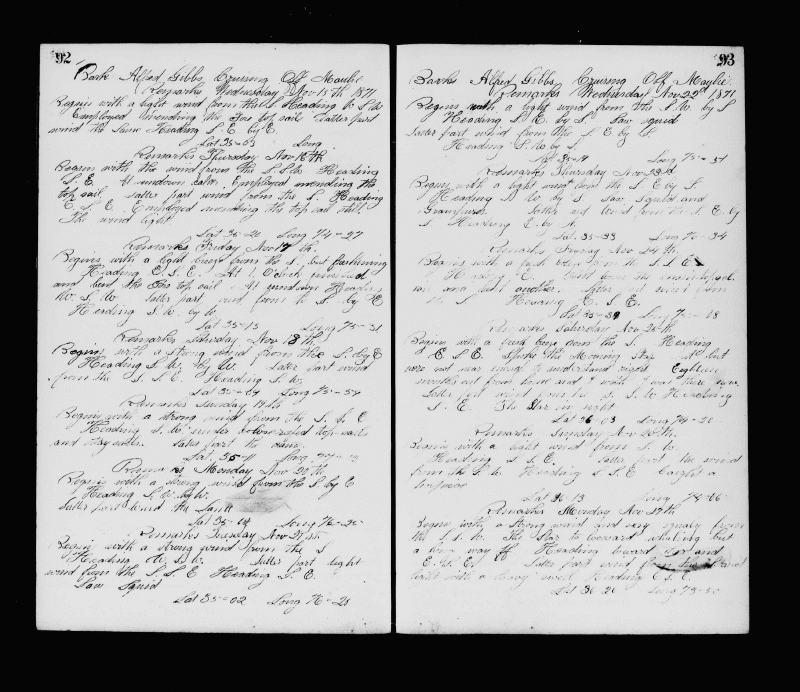 92
Bark Alfred Gibbs, Cruising Off Maybe
Remarks Wednesday Nov 15th 1871
Begins with a light wind from the S Heading
Employed mending the Fore top sail Latter part
wind the Same Heading S. E. by E.
Lat 35-03 Long
Remarks Thursday Nov 16th
Begins with the wind from the S.S.W. Heading
S. E. At sundown calm. Employed mending the
top sail. Latter part wind from the S. Heading
E. S. E. Employed mending the top sail still.
The wind light
Lat 35-20 Long 74-27
Remarks Friday Nov 17th
Begins with a light breeze from the S. but freshening
Heading E. S. E. At 1 O'clock finished
and bent the Fore top sail. At sundown Heading
W. S. W. Latter part wind from the S. by E
Heading S. W. by W.
Lat 35-13 Long 75-31
Remarks Saturday Nov 18th
Begins with a strong wind from the S. by E
Heading S. W. by W. Later part wind
from the S. S. E. Heading S. W.
Lat 35-04 Long 75-54
Remarks Sunday 19th
Begins with a strong wind from the S. S. E
Heading S. W. under close reefed top-sails
and stay sails. Latter part the Same.
Lat 35-11
Remarks Monday Nov 20th
Begins with a strong wind from the S by E
Heading S. W. by W.
Latter part wind the Same
Lat 35-04 Long 76-20
Remarks Tuesday Nov 21st
Begins with a strong wind from the S
Heading W. S. W. Latter part light
wind from the S. S. E Heading S. E.
Saw Squid
Lat 35-02 Long 76-23
93
Bark Alfred Gibbs, Cruising Off Maybe
Remarks Wednesday Nov 22d 1871
Begins with a light wind from the S. W. by S
Heading S. E. by S. Saw squid
Latter part wind from the S. E. by S.
Heading S. W. by S.
Lat 35-14 Long 75-51
Remarks Thursday Nov 23d
Begins with a light wind from the S. E. by S.
Heading S. W. by S. Saw Squid and
Grampuses. Latter part Wind from the S. E. by
S Heading E. by N.
Lat 35-33 Long 75-34
Remarks Friday Nov 24th
Begins with a fresh breeze from the S. S. E
Heading E.
sail and bent another. Latter part wind from
the S. Heading E. S. E.
Lat 35-39 Long 75-08
Remarks Saturday Nov 25th
Begins with a fresh breeze from the S. Heading
E. S. E. Spoke the Morning Star but
were not near enough to understand right. Eighteen
months out from home and I wish I was there again
Latter part wind from the S. S. W. Heading
S. E. The Star in sight
Lat 36-03 Long 74-20
Remarks Sunday Nov 26th
Begins with a light wind from S. W.
Heading S. S. E. Latter part the wind
from the S. W. Heading S. S. E Caught a
Lat 36-13 Long 73-06
Remarks Monday Nov 27th
Begins with a Strong wind and very squaly from
the S. S. W. The Star to leward whaling but
a long way off Heading toward her and
E. S. E. Latter part wind from
light with a heavy swell Heading E. S. E.
Lat 36-21 Long 73-50